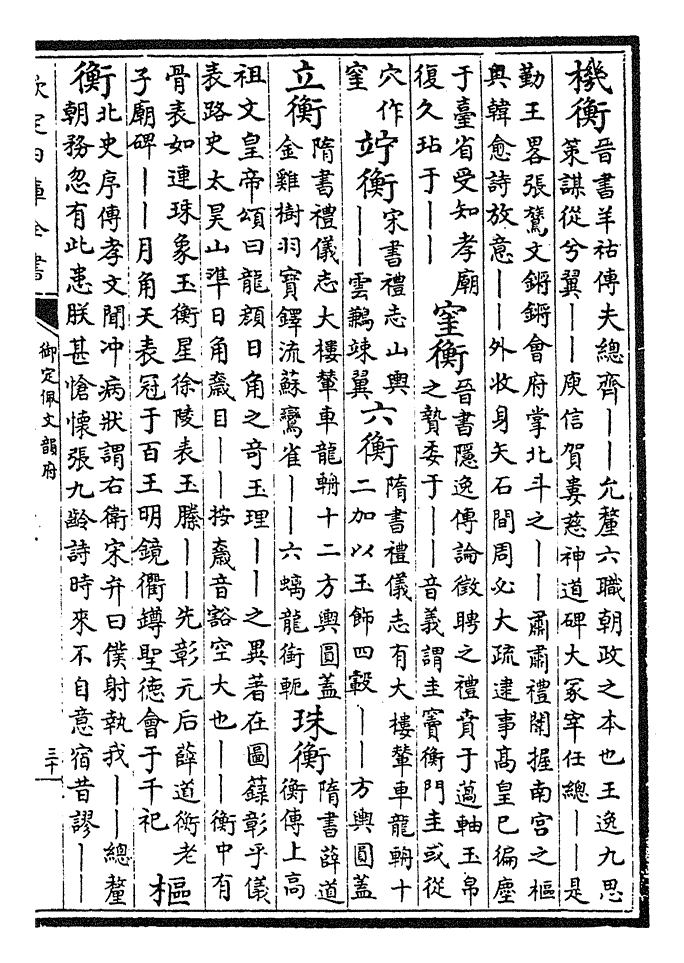 機衡
晉書羊祜傳夫總齊丨丨允釐六職朝政之本也王逸九思
策謀從兮翼丨丨庾信賀婁慈神道碑大冡宰任總丨丨是
勤王畧張鷟文鏘鏘會府掌北斗之丨丨肅肅禮闈握南宫之樞
奥韓愈詩放意丨丨外收身矢石間周必大疏逮事髙皇已徧塵
于臺省受知孝廟
復久玷于丨丨
窐衡
晉書隱逸傳論徵聘之禮賁于薖軸玉帛
之贄委于丨丨音義謂圭竇衡門圭或從
穴作
窐
竚衡
宋書禮志山輿
丨丨雲鸝竦翼
六衡
隋書禮儀志有大樓輦車龍輈十
二加以玉飾四轂丨丨方輿圓蓋
立衡
隋書禮儀志大樓輦車龍輈十二方輿圓蓋
金雞樹羽寶鐸流蘇鸞雀丨丨六螭龍銜軛
珠衡
隋書薛道
衡傳上高
祖文皇帝頌曰龍顔日角之奇玉理丨丨之異著在圖籙彰乎儀
表路史太昊山準日角奯目丨丨按奯音豁空大也丨丨衡中有
骨表如連珠象玉衡星徐陵表玉縢丨丨先彰元后薛道衡老
子廟碑丨丨月角天表冠于百王明鏡衢罇聖德會于千祀
樞
衡
北史序傳孝文聞冲病狀謂右衛宋弁曰僕射執我丨丨總釐
朝務忽有此患朕甚愴懷張九齡詩時來不自意宿昔謬丨丨
欽定四庫全書
御定佩文韻府
三十